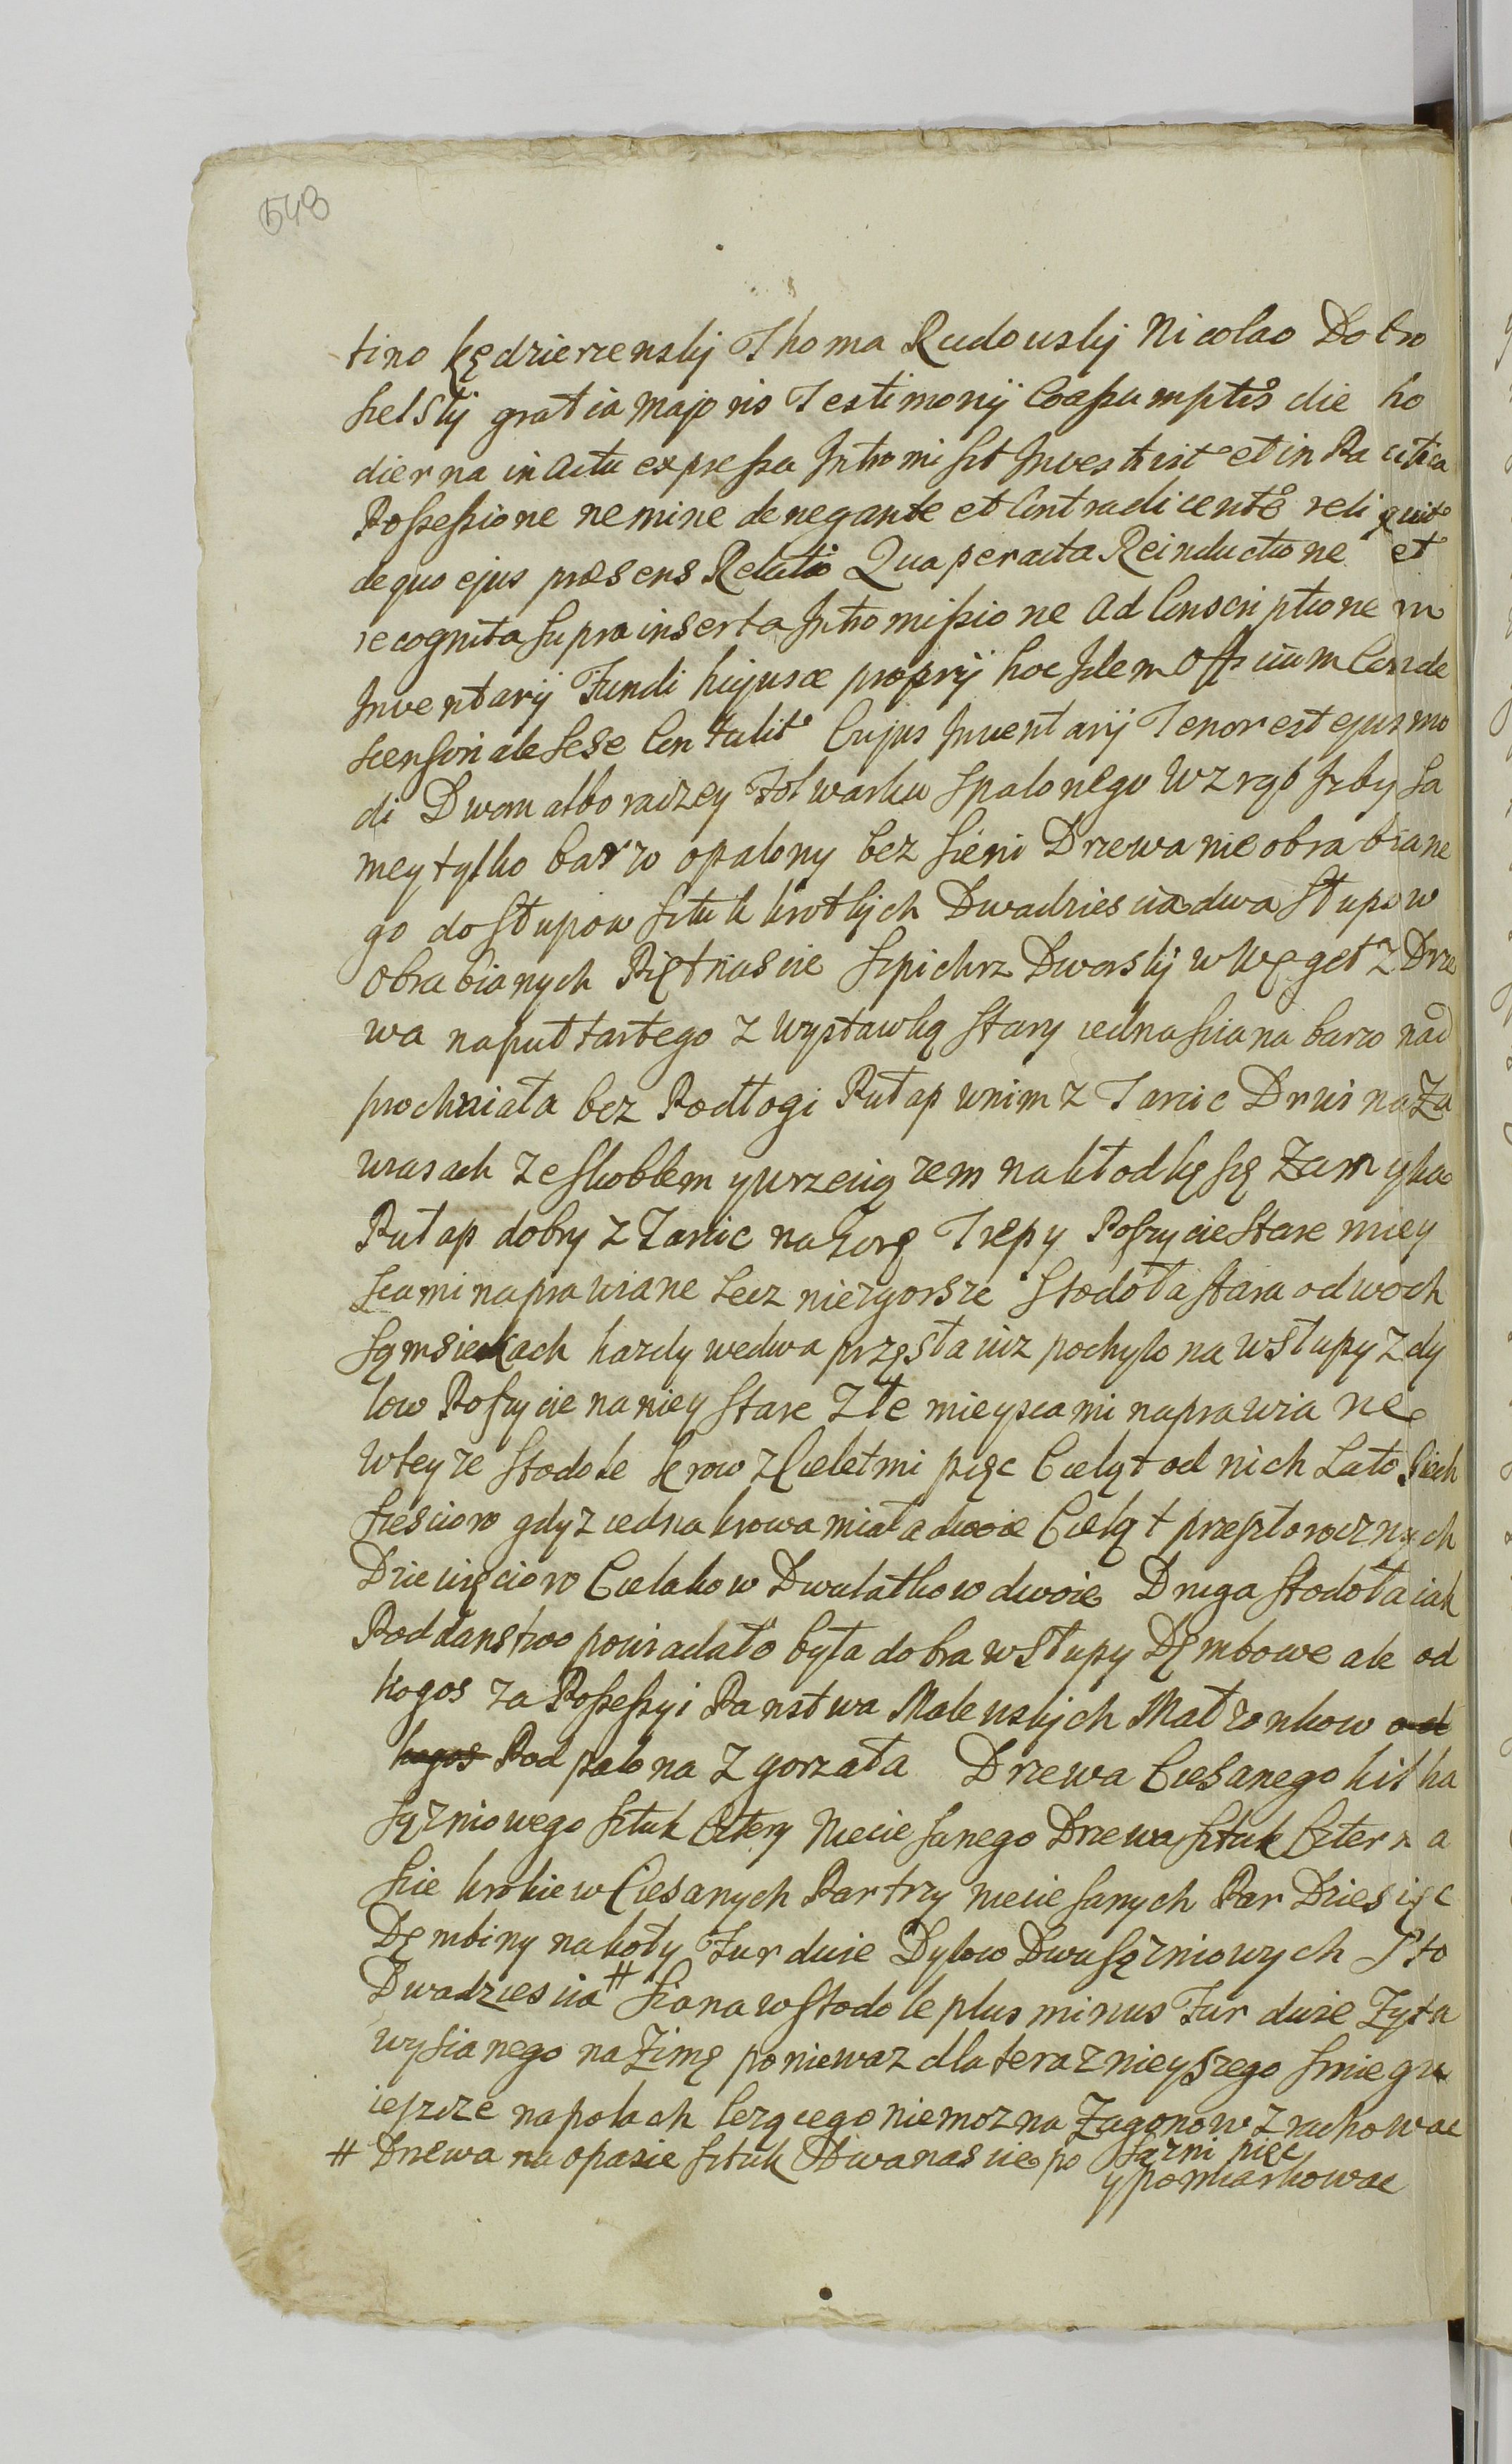 548
tino Kędzierzenskij Thoma Rudouskij Nicolao Dobro
sielskij gratia majoris Testimonij Coassumptis die ho
dierna in actu expressa Intromisit Investivit et in Pacifica
Possessione nemine denegante et Contradicente reliquit
de quo ejus præsens Relatio Qua peracta Reinductione et
recognita supra inserta Intromissione ad Conscriptionem
Inventarij Fundi hujusce proprij hoc Idem Officium Conde
scensoriale sese Contulit Cujus Inventarij Tenor est ejusmo
di Dwom albo raczey Folwarku spalonego Wzrąb Izby sa
mey tylko barzo opalony bez sieni Drzewa nieobrabiane
go do słupow sztuk krotkich Dwadziescia dwa słupow
obrabianych Piętnascie Szpichrz Dworskij w Węgeł z Drze
wa naput tartego z wystawką stary iedna sciana barzo nad
prochniała bez Podłogi Pułap wnim z Tarcic Drwi na Za
wiasach ze skoblem y wrzeciązem na kłodkę się zamyka
Pułap dobry z Tarcic na Gorę Trepy Poszycie stare miey
scami naprawiane lecz niezgorsze Stodoła stara o dwoch
sąmsiekach kazdy wedwa przęsła iuz pochyło na w słupy z dy
low Poszycie na niey stare złe mieyscami naprawiane
wteyze stodole krow z Cieletmi pięc Cieląt od nich Latosich
szescioro gdyz iedna krowa miała dwoie Cieląt przeszłorocznych
Dziewięcioro Cielakow Dwulatkow dwoie Druga stodoła iak
Poddanstwo powiadało była dobra w słupy Dębowe ale od
kogos za Possessyi Panstwa Malewskich Małzonkow od
kogos Podpalona zgorzała Drzewa Ciesanego kilka
sążniowego sztuk Cztery Nieciesanego Drzewa sztuk Czterna
scie krokiew Ciesanych Par trzy nieciesanych Par Dziesięc
Dęmbiny na koły Fur dwie Dylow Dwusążniowych Sto
Dwadziescia # Siana w stodole plus minus Fur dwie Zyta
wysianego na Zimę poniewaz dla teraznieyszego sniegu
ieszcze na polach lezącego niemozna Zagonow zrachowac
# Drzewa na opasie sztuk Dwanascie po sązni pięc
y pomiarkowac